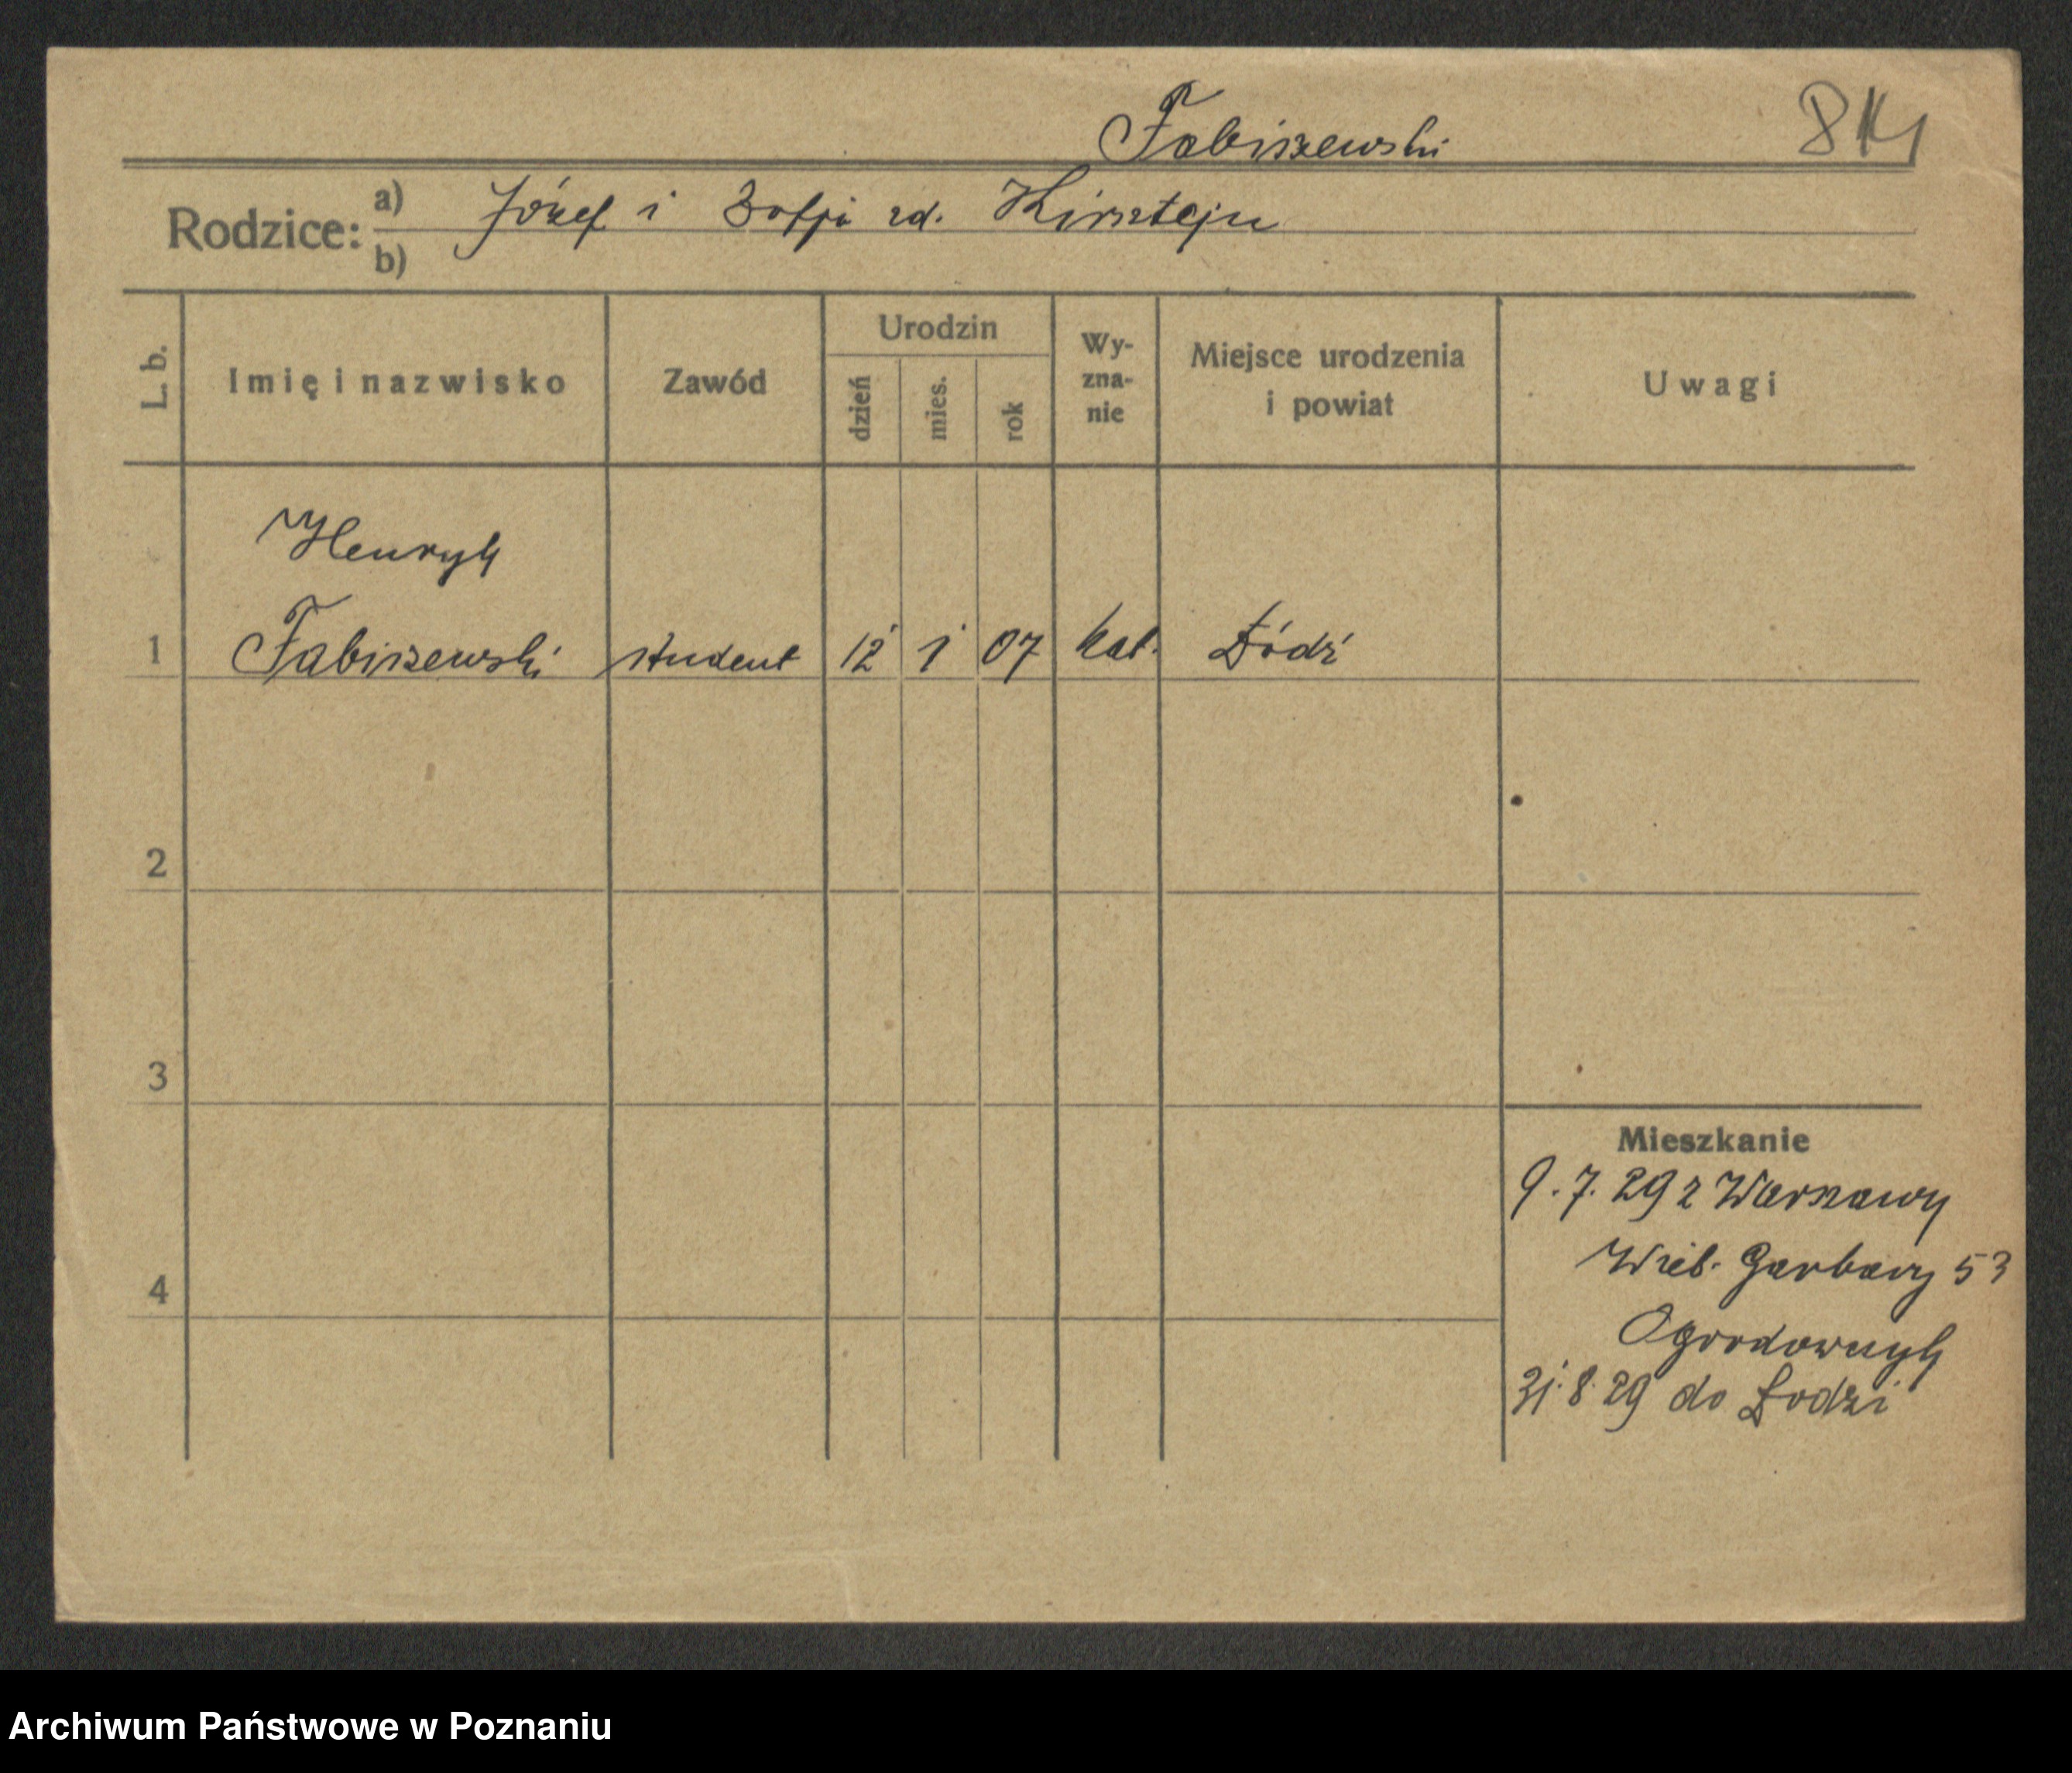 Fabiszewski
Rodzice: a) Józef i Zofji zd. Kirsztejn
b)
L. b. Imię i nazwisko Zawód Urodzin dzień mies. rok Wy-zna-nie Miejsce urodzenia i powiat Uwagi
Henryk
1 Fabiszewski student 12 1 07 kat. Łódź
2
3
Mieszkanie
9. 7. 29 z Warszawy
4 Garbary 53
Ogrodowczyk
31. 8. 29 do Łodzi
Archiwum Państwowe w Poznaniu